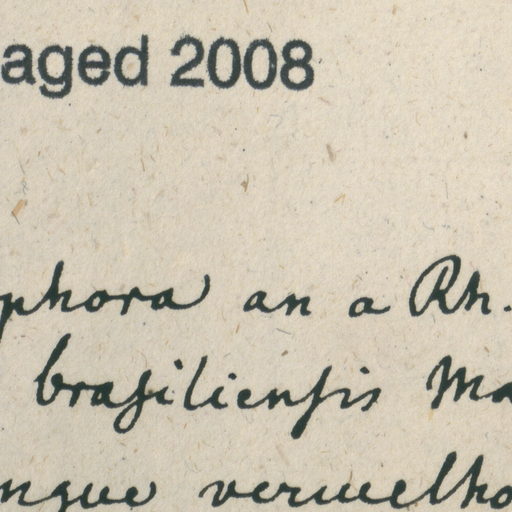 aged 2008
phora an a Rh.
braſilienſis Ma
ngue vermelho